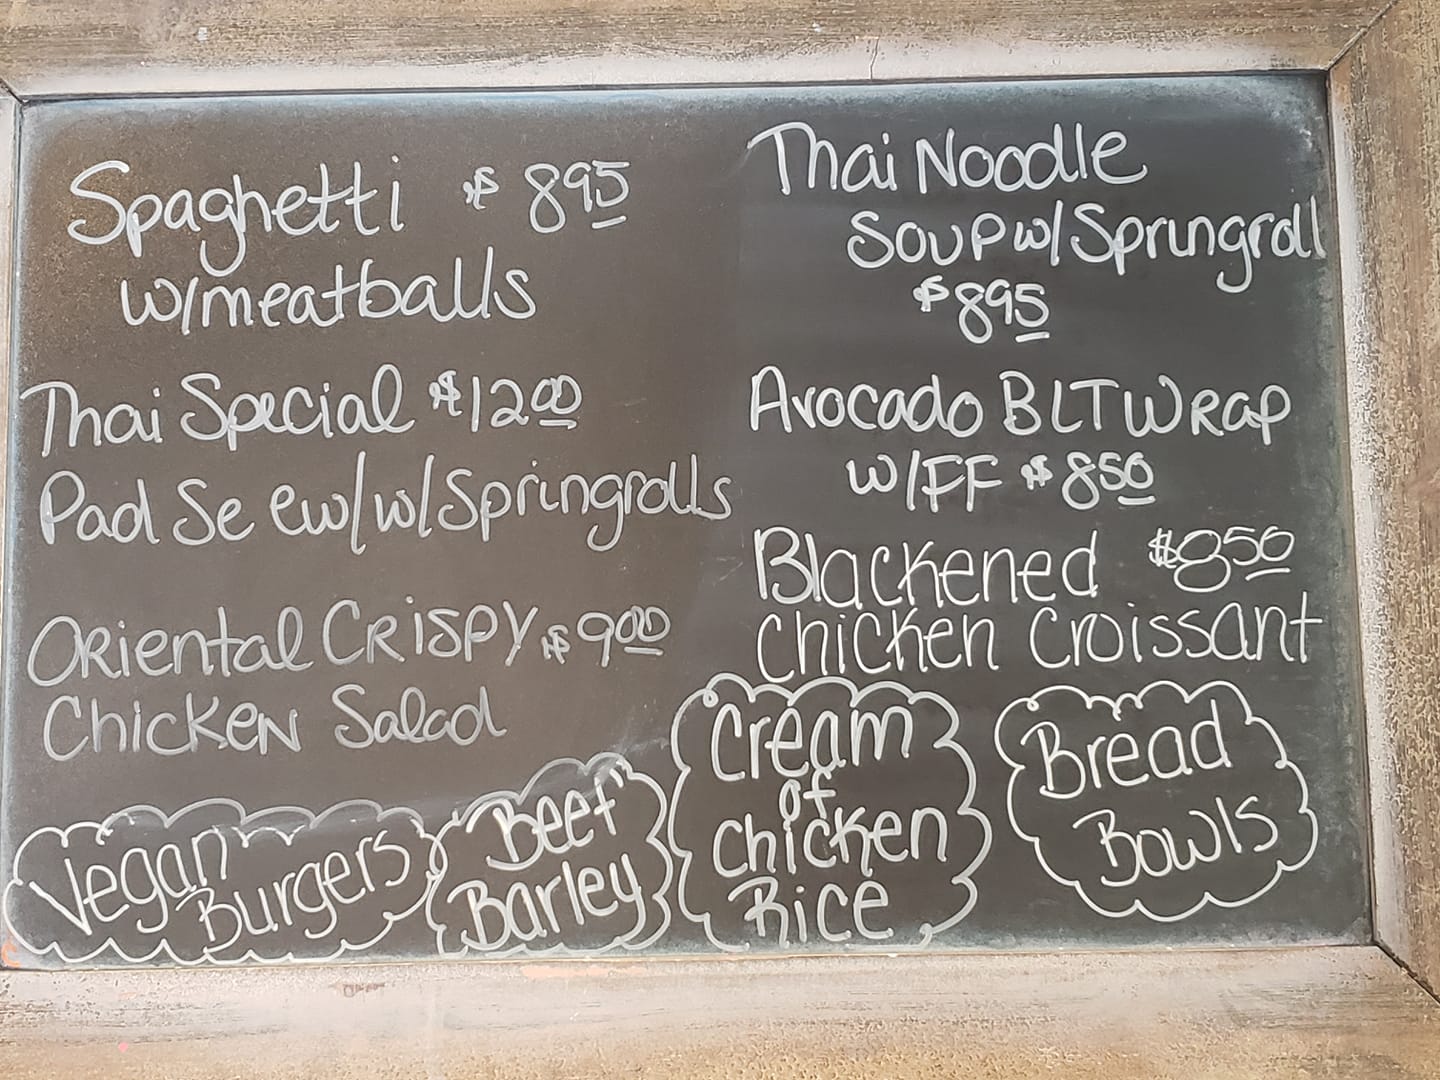 Spaghetti $8.95
w/meatballs
Thai Special $12.00
Pad Se ew/w/Springrolls
Oriental Crispy $9.00
Chicken Salad
Thai Noodle
Soup w/Springroll
$8.95
Avocado BLT Wrap
w/FF $8.50
Blackened $8.50
Chicken Croissant
Vegan
Burgers
Beef
Barley
Cream
of
Chicken
Rice
Bread
Bowls